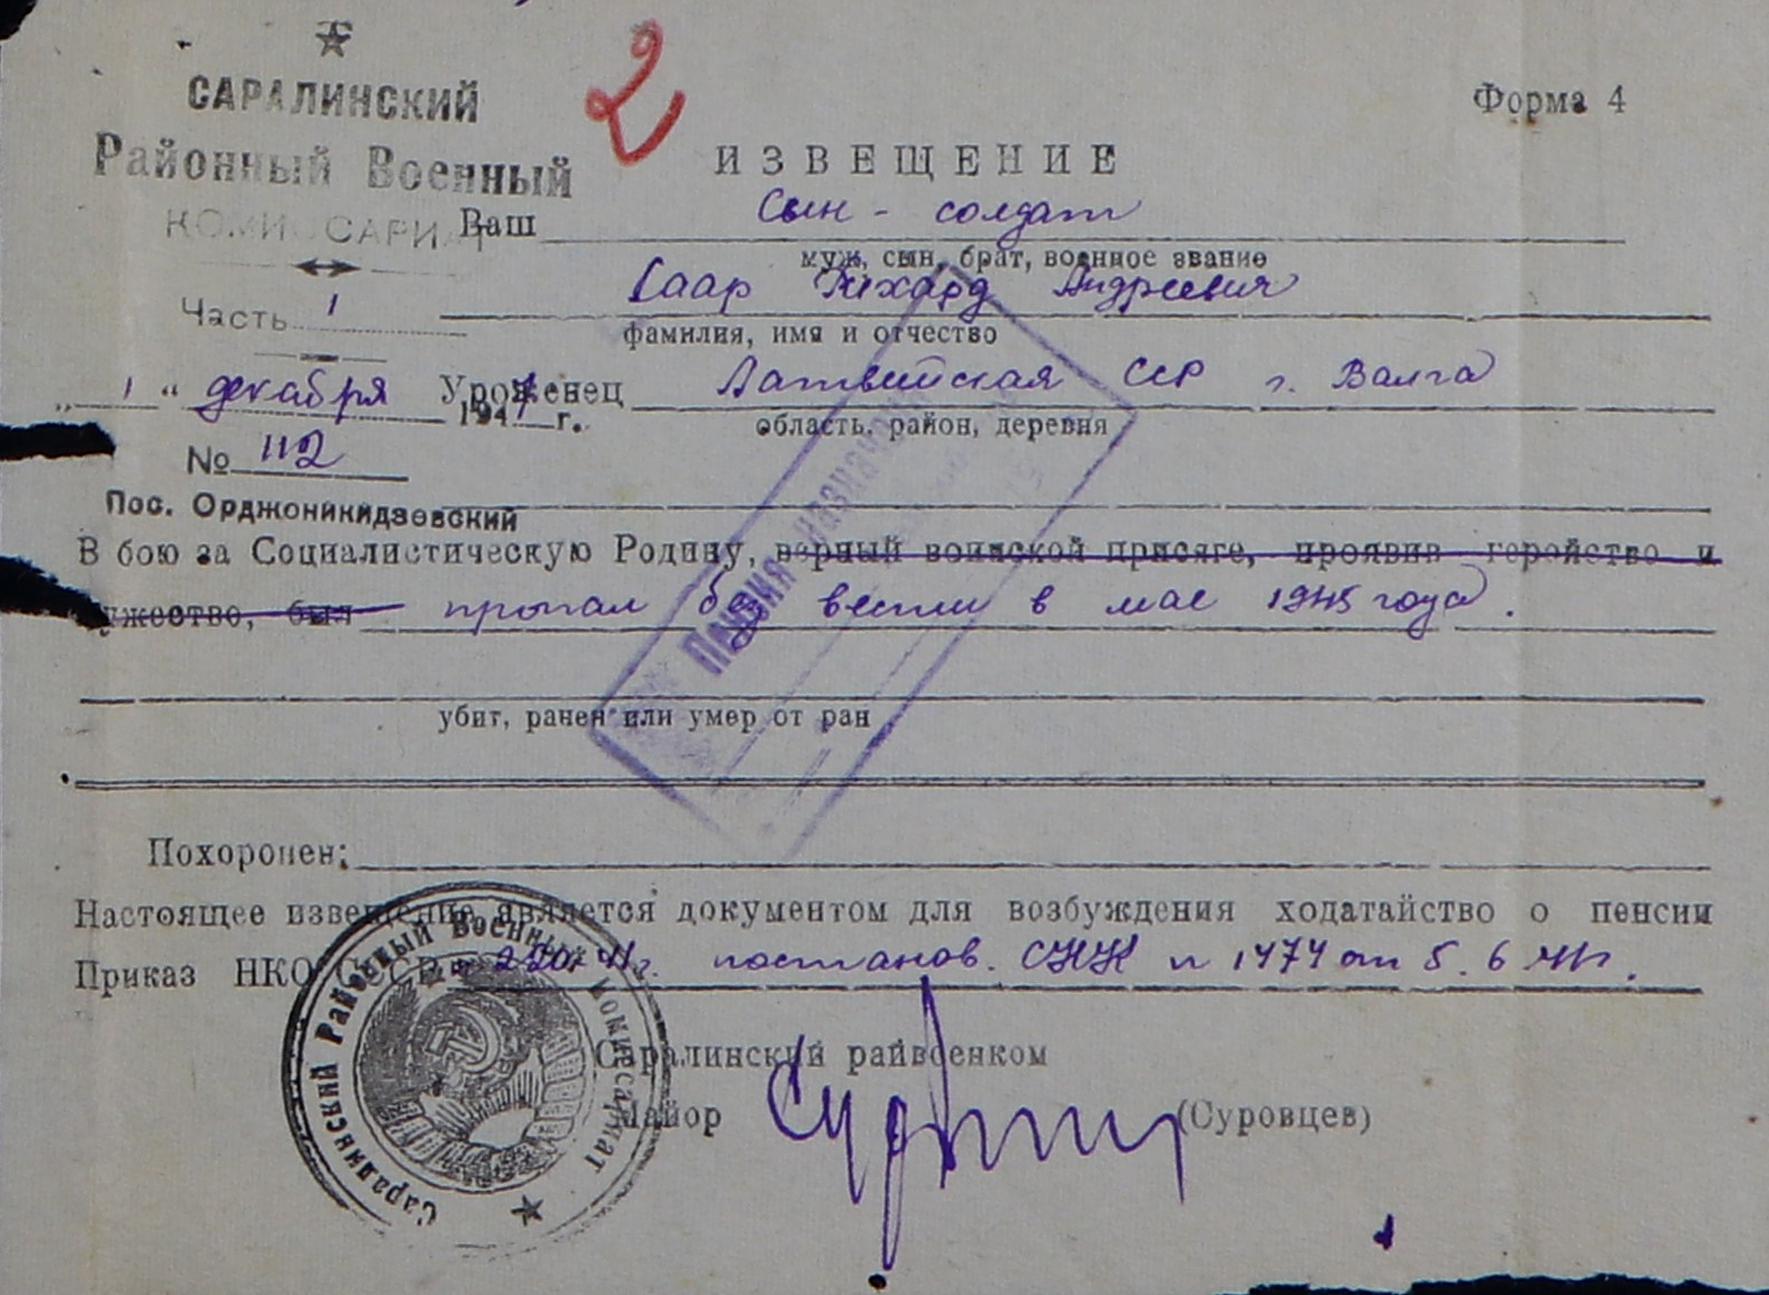 2
Форма 4
САРАЛИНСКИЙ
Районный Военный
КОМИССАРИАТ
Часть 1
„ 1 “ декабря 194 г.
№ 112
Пос. Орджоникидзевский
ИЗВЕЩЕНИЕ
Ваш сын - солдат
муж, сын, брат, военное звание
Саар Рихард Андреевич
фамилия, имя и отчество
Уроженец Латвийская ССР г. Валга
область, район, деревня
В бою за Социалистическую Родину, верный воинской присяге, проявив геройство и
ужество, был пропал без вести в мае 1945 года.
убит, ранен или умер от ран
Пенсия назначена
Похоронен:
Настоящее извещение является документом для возбуждения ходатайство о пенсии
Приказ НКО СССР 220 41г. постанов. СНК № 1474 от 5.6.41г.
Саралинский райвоенком
Майор (Суровцев)
Саралинский Районный Военный Комиссариат